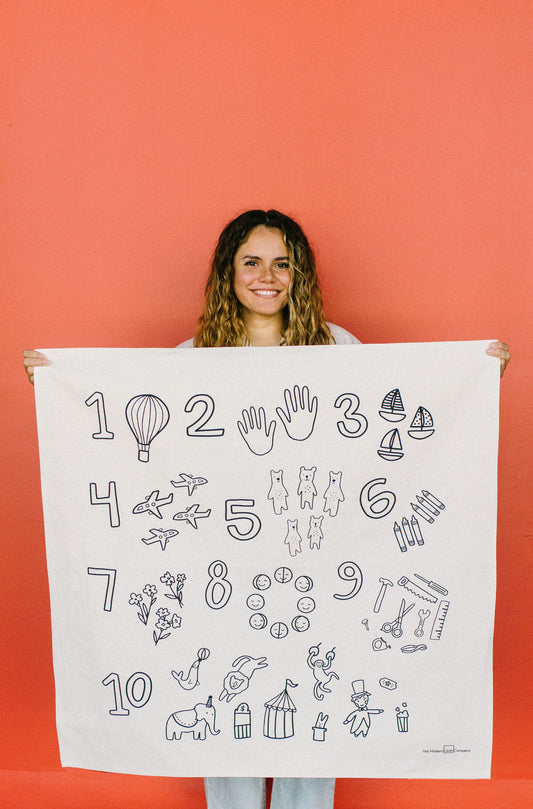 1 2 3
4 5 6
7 8 9
10
The Modern Company